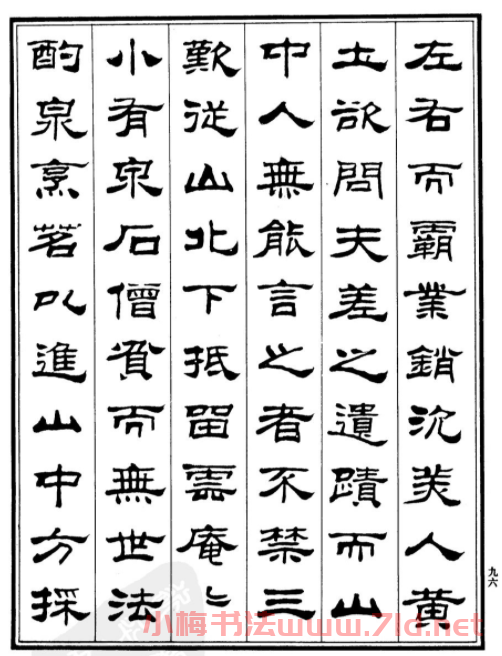 左右而霸業銷沉美人黃
土欲問夫差之遺蹟而山
中人無能言之者不禁三
歎從山北下抵留雲庵〻
小有泉石僧貧而無世法
酌泉烹茗以進山中方採
九六
小梅书法www.7ld.net